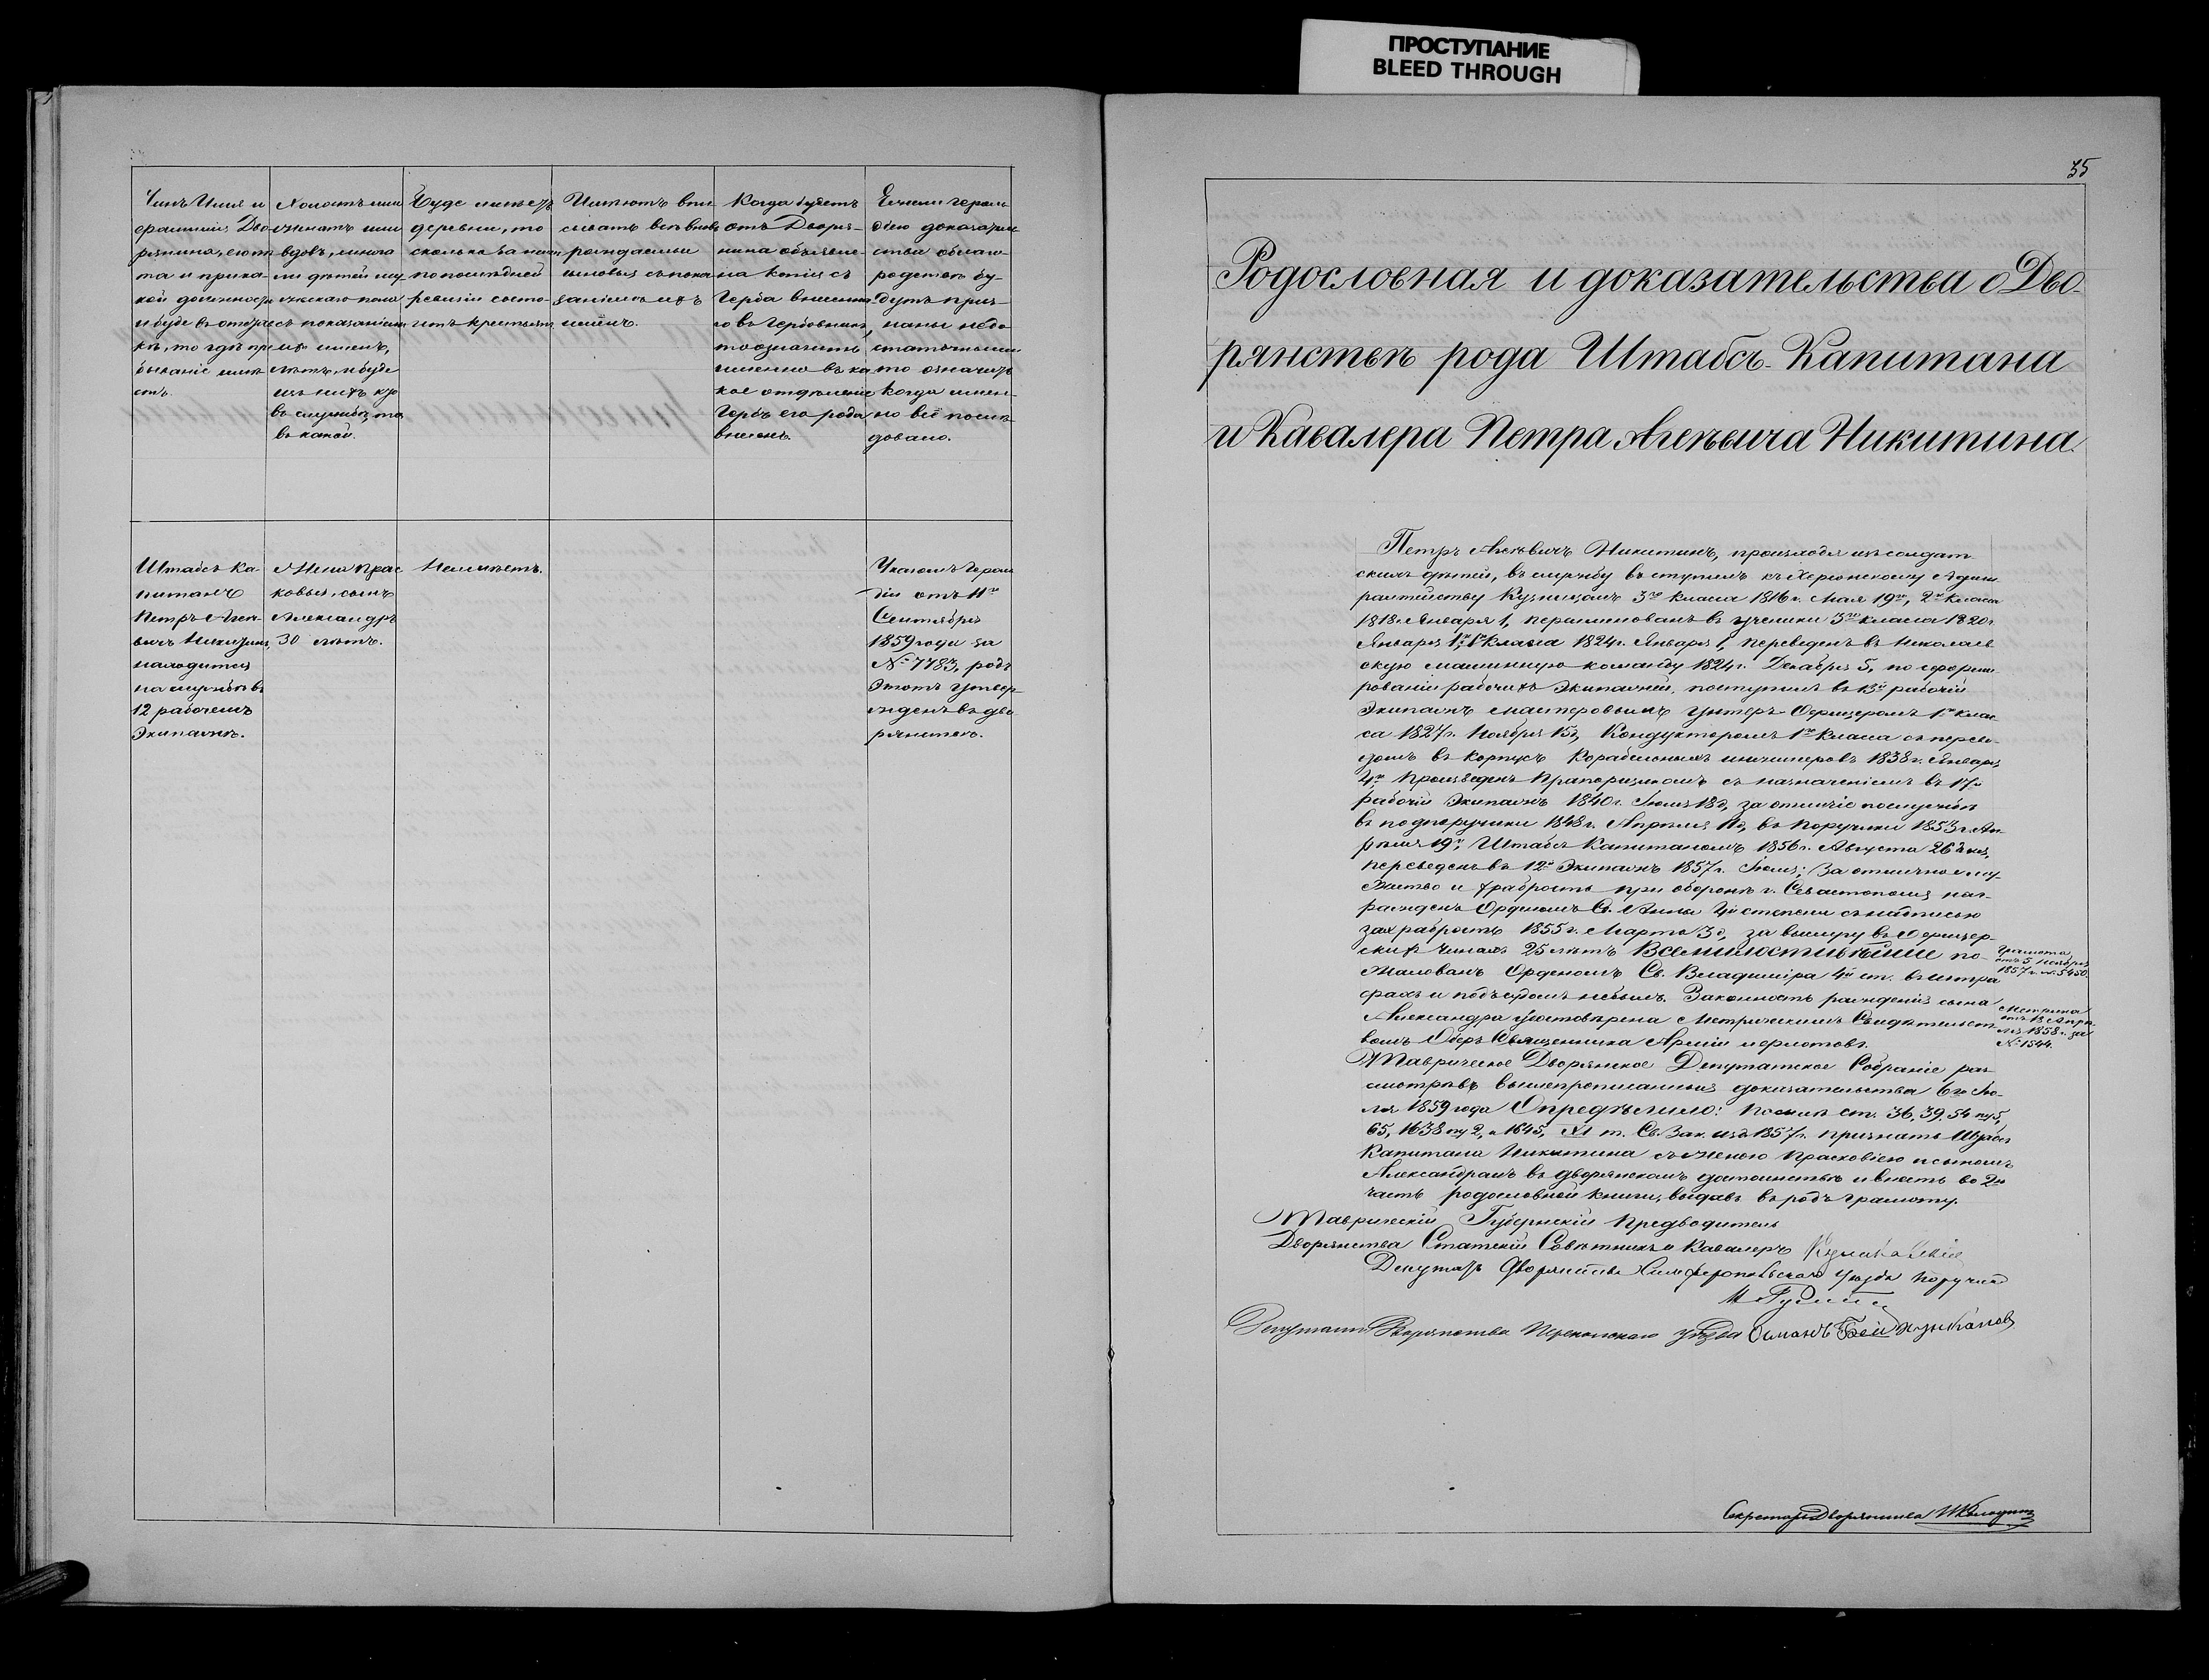 ПРОСТУПАНИЕ
BLEED THROUGH
Чинъ Имя и
фамилія Дво
рянина, его лѣ
та и прика
кой должности
и буде въ отстав
кѣ, то гдѣ пре
бываніе имѣ
етъ.
Холостъ или
женатъ или
вдовъ, имѣетъ
ли дѣтей му
жескаго пола
съ показаніемъ
ихъ именъ,
лѣтъ, и буде
изъ нихъ кто
въ службѣ, то
въ какой.
Буде имѣетъ
деревни, то
сколько за нимъ
по послѣдней
ревизіи состо
итъ крестьянъ
Имѣютъ впи
сывать всѣ вновь
рождаемые
сыновья съ пока
заніемъ ихъ
имёнъ.
Когда будетъ
отъ Дворя-
нина объявле-
на копія съ
Герба внесенна
го въ Гербовникъ,
то означить
именно въ ка
кое отдѣленіе
Гербъ его рода
внесенъ.
Ежели Гераль
діею доказатель
ства о благо
родствѣ бу-
дутъ приз-
наны недо
статочными
то означить
когда имен-
но всё послѣ
довало.
Штабсъ Ка-
питанъ
Петръ Агѣе-
вичъ Никитинъ,
находится
на службѣ въ
12 рабочемъ
Экипажѣ.
Жена Прас
ковья, сынъ
Александръ
30 лѣтъ.
Неимѣетъ.
Указомъ Гераль
діи отъ 11го
Сентября
1859 года за
№ 7783, родъ
этотъ утвер-
жденъ въ дво
рянствѣ.
35
Родословная и доказательства о Дво-
рянствѣ рода Штабсъ-Капитана
и Кавалера Петра Агѣевича Никитина.
Петръ Агѣевичъ Никитинъ, происходя изъ солдат
скихъ дѣтей, въ службу вступилъ къ Херсонскому Адми
ралтейству Кузнецомъ 3го класса 1816 г. Мая 19го, 2го класса
1818 г. Января 1, переименованъ въ ученики 3го класса 1820 г.
Января 1го, 1го класса 1824 г. Января 1, переведенъ въ Николаев
скую машинную команду 1824 г. Декабря 5, по сформи
рованіи рабочихъ Экипажей, поступилъ въ 13й рабочій
Экипажъ мастеровымъ унтеръ-Офицеромъ 1го клас
са 1827 г. Ноября 15, Кондукторомъ 1го класса съ перево-
домъ въ корпусъ Корабельныхъ инженеровъ 1838 г. Января
4го Произведенъ Прапорщикомъ съ назначеніемъ въ 17й
рабочій Экипажъ 1840 г. Іюля 18го, за отличіе по службѣ
въ подпоручики 1848 г. Апрѣля 11го, въ Поручики 1853 г. Ап-
рѣля 19го, Штабсъ Капитаномъ 1856 г. Августа 26 дня,
переведенъ въ 12й Экипажъ 1857 г. Іюля; За отличное му-
жество и храбрость при оборонѣ г. Севастополя наг-
ражденъ Орденомъ Св. Анны 4й степени съ надписью
за храбрость 1855 г. Марта 3го, за выслугу въ Офицер-
скихъ чинахъ 25 лѣтъ Всемилостивѣйше по-
жалованъ Орденомъ Св. Владиміра 4й ст. въ
Законность рожденія сына
Александра удостовѣрена Метрическимъ Свидѣтельст
вомъ Оберъ Священника Арміи и флотовъ.
Грамота
отъ 5 Ноября
1857 г. № 5450
Метрика
отъ 18 Апрѣ-
ля 1858 г. за
№ 1544.
Таврическое Дворянское Депутатское Собраніе раз-
смотрѣвъ вышепрописанныя доказательства 6го Ію-
ля 1859 года Опредѣлило: На силѣ ст. 36, 39, 54 пу 5,
65, 1638 пу 2, и 1645, IX т. Св. Зак. изд 1857 г. признать Штабсъ
Капитана Никитина съ женою Прасковіею и сыномъ
Александромъ въ дворянскомъ достоинствѣ и внесть во 2ю
часть родословной книги, выдавъ въ родъ грамоту.
Таврическій Губернскій Предводитель
Дворянства Статскій Совѣтникъ и Кавалеръ
Депутатъ Дворянства Симферопольскаго Уѣзда Поручикъ
Депутатъ Дворянства Перекопскаго уѣзда Османъ Бей
Секретарь Дворянства